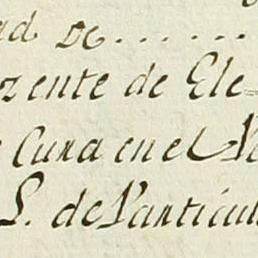 ad de......
zente de Ele=
Cura en el
S. de Particul